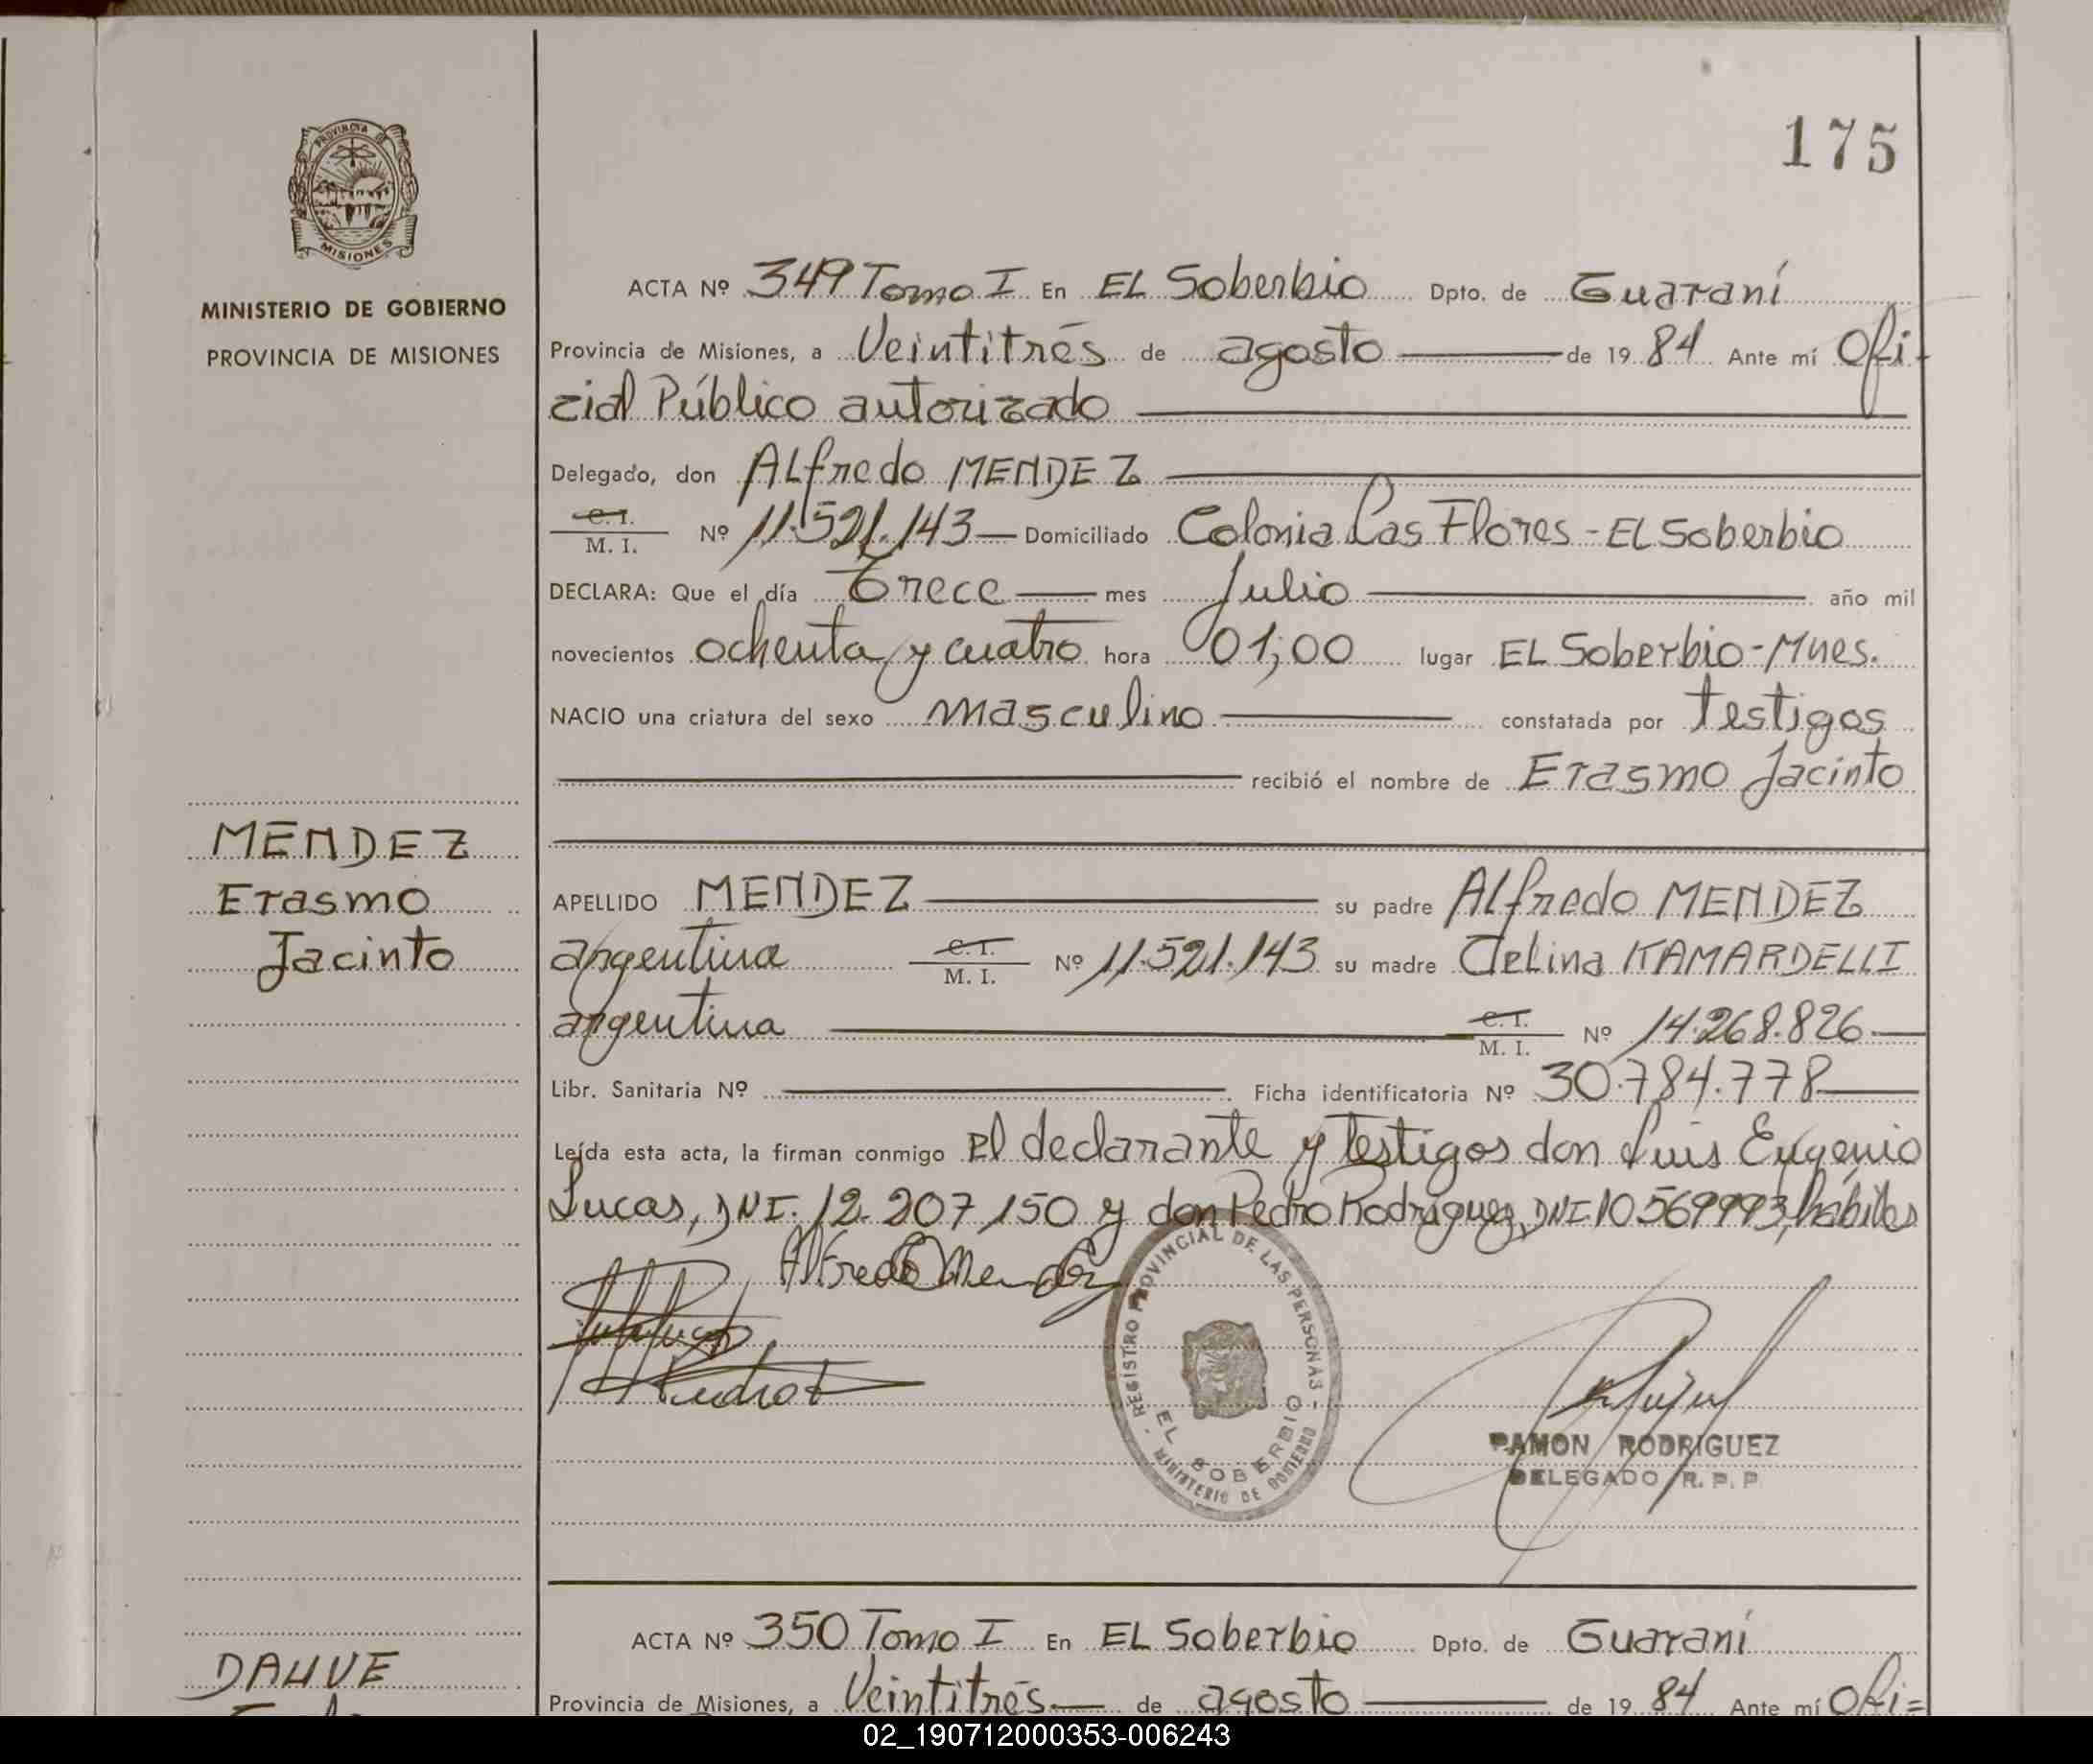 175
PROVINCIA DE
MISIONES
MINISTERIO DE GOBIERNO
PROVINCIA DE MISIONES
ACTA Nº 349 Tomo I En EL Soberbio Dpto. de Guaraní
Provincia de Misiones, a Veintitrés de agosto de 19 84 Ante mí Ofi-
cial Público autorizado
Delegado, don ALfredo MENDEZ
C. I.
M. I. Nº 11.521.143 Domiciliado Colonia Las Flores - EL Soberbio
DECLARA: Que el día Trece mes Julio año mil
novecientos ochenta y cuatro hora 01,00 lugar EL Soberbio - Mnes.
NACIO una criatura del sexo masculino constatada por testigos
recibió el nombre de Erasmo Jacinto
MENDEZ
Erasmo
Jacinto
APELLIDO MENDEZ su padre ALfredo MENDEZ
argentina C. I.
M. I. Nº 11.521.143 su madre CELina KAMARDELLI
argentina C. I.
M. I. Nº 14.268.826
Libr. Sanitaria Nº Ficha identificatoria Nº 30.784.778
Leída esta acta, la firman conmigo el declarante y testigos don Luis Eugenio
Lucas, DNI. 12.207.150 y don Pedro Rodriguez, DNI 10569993, hábiles
Alfredo Mendez
REGISTRO PROVINCIAL DE LAS PERSONAS -
EL SOBERBIO
MINISTERIO DE GOBIERNO
RAMON RODRIGUEZ
DELEGADO R. P. P.
DAHVE
ACTA Nº 350 Tomo I En EL Soberbio Dpto. de Guaraní
Provincia de Misiones, a Veintitrés de agosto de 19 84 Ante mí Ofi=
02_190712000353-006243